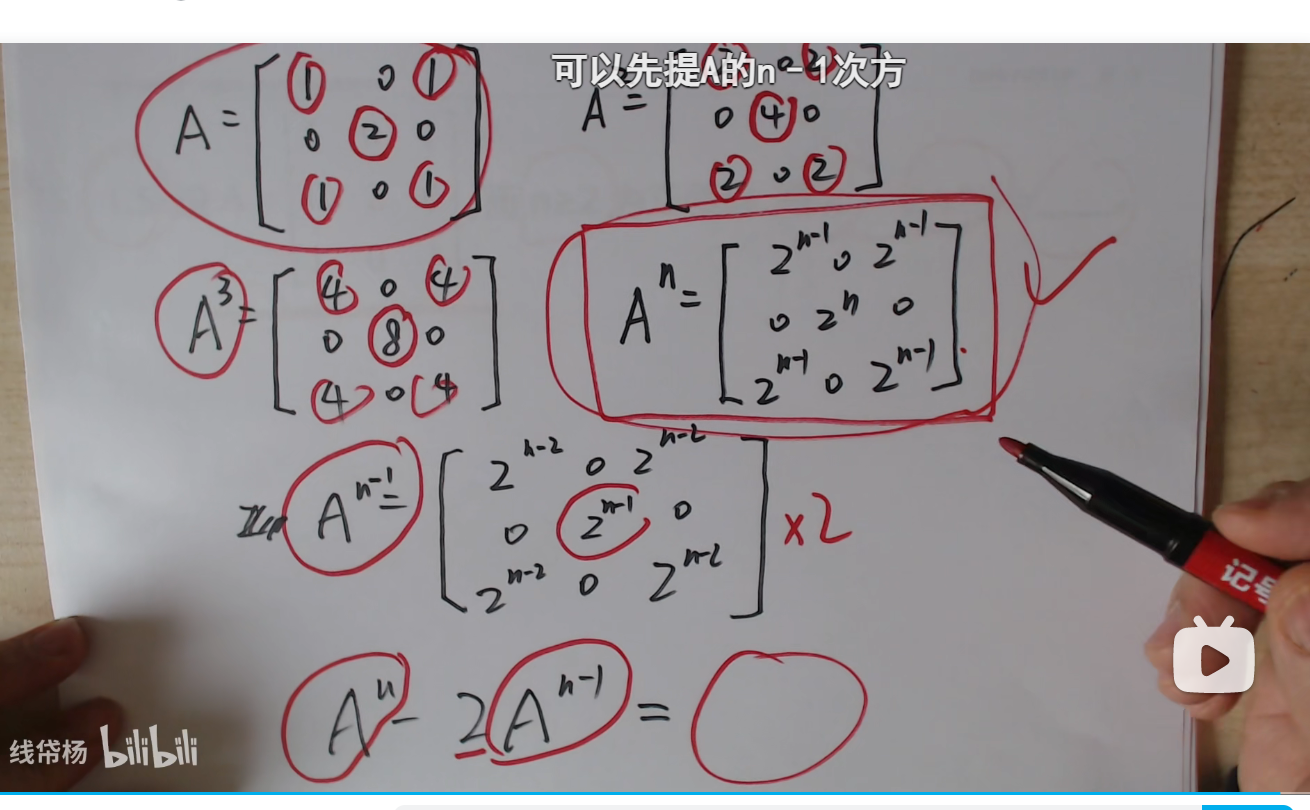 可以先提A的n-1次方
A = [ 1 0 1
0 2 0
1 0 1 ]
A² = [ 2 0 2
0 4 0
2 0 2 ]
A³ = [ 4 0 4
0 8 0
4 0 4 ]
Aⁿ = [ 2ⁿ⁻¹ 0 2ⁿ⁻¹
0 2ⁿ 0
2ⁿ⁻¹ 0 2ⁿ⁻¹ ]
Aⁿ⁻¹ = [ 2ⁿ⁻² 0 2ⁿ⁻²
0 2ⁿ⁻¹ 0
2ⁿ⁻² 0 2ⁿ⁻² ] ×2
Aⁿ - 2Aⁿ⁻¹ =
记号
线帒杨 bilibili